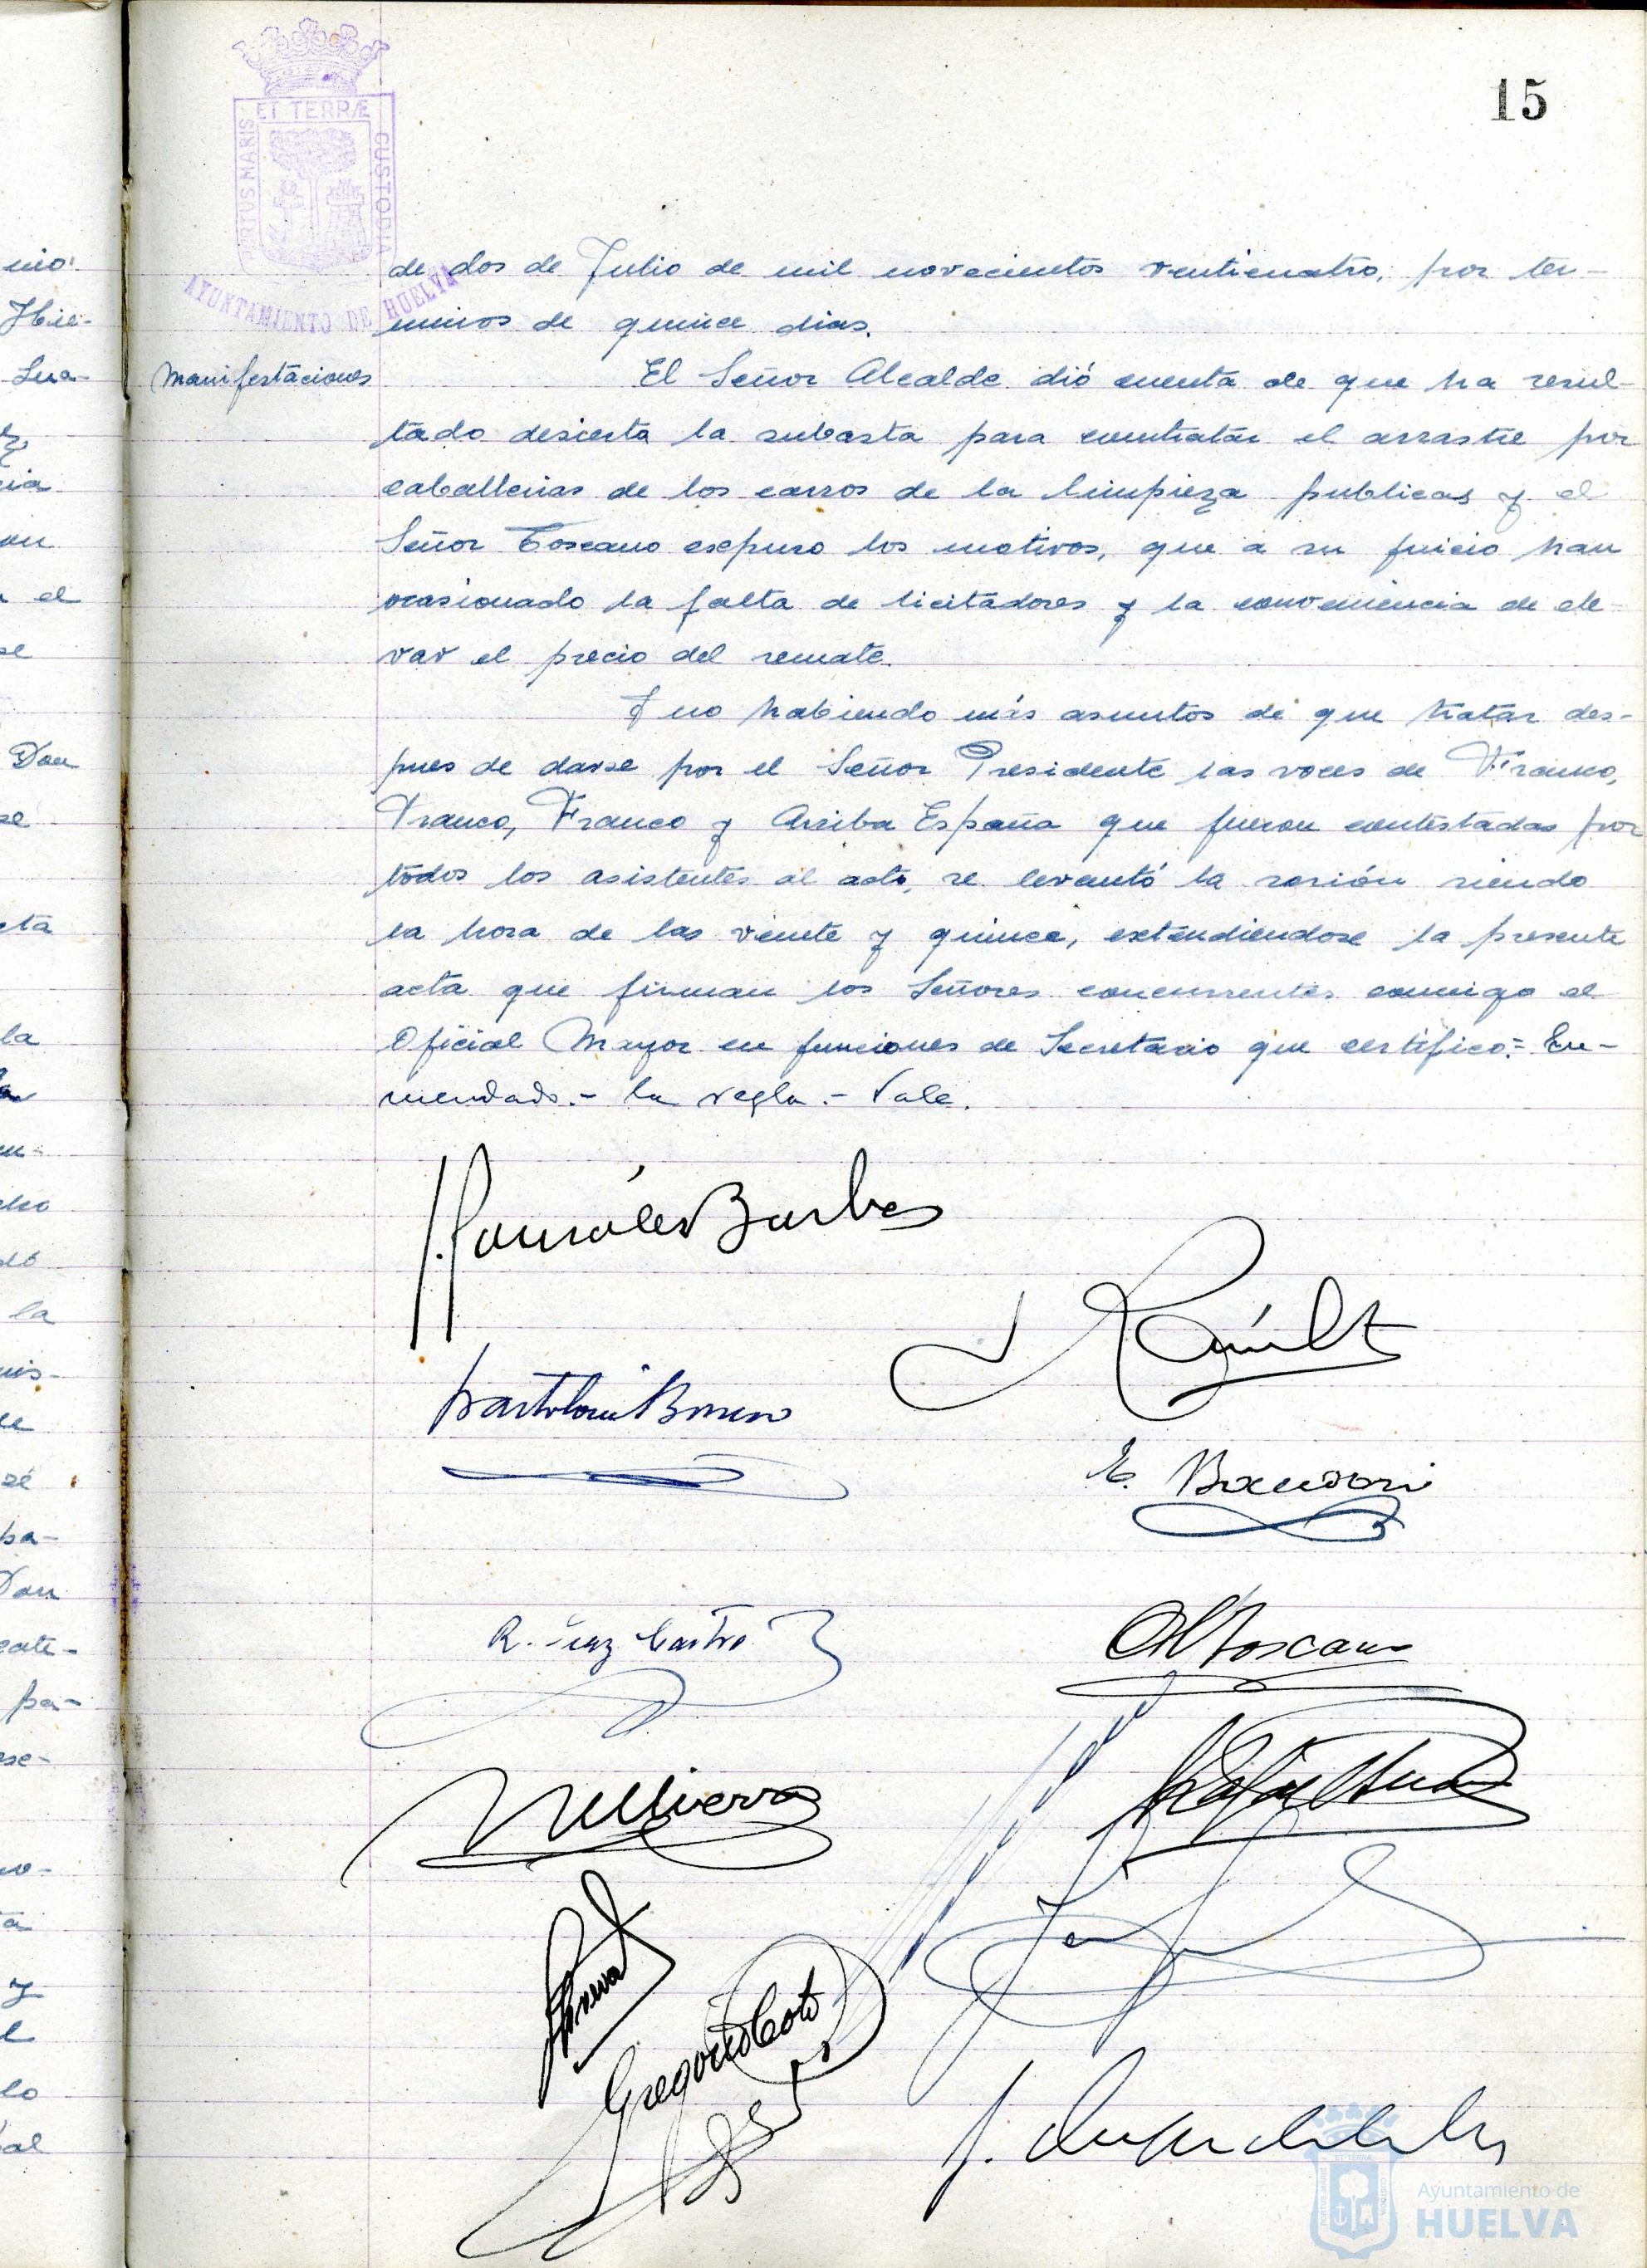 15
ET TERRÆ
CUSTODIA
PORTUS MARIS
AYUNTAMIENTO DE HUELVA
de dos de Julio de mil novecientos venticuatro, por ter-
minos de quince dias.
Manifestaciones
El Señor Alcalde dió cuenta de que ha resul-
tado desierta la subasta para contratar el arrastre por
caballerias de los carros de la limpieza publica y el
Señor Toscano expuso los motivos, que a su juicio han
ocasionado la falta de licitadores y la conveniencia de ele-
var el precio del remate.
Y no habiendo más asuntos de que tratar des-
pues de darse por el Señor Presidente las voces de Franco,
Franco, Franco y Arriba España que fueron contestadas por
todos los asistentes al acto, se levantó la sesión siendo
la hora de las veinte y quince, extendiendose la presente
acta que firman los Señores concurrentes conmigo el
Oficial Mayor en funciones de Secretario que certifico.= En-
mendado.- la regla.- Vale.
J. González Barba
E.
R. Díaz Castro
Toscano
Gregorio Coto
Ayuntamiento de
HUELVA
mo
Hie-
ia
el
se
Don
se
cta
la
en-
cho
la
mis-
ba-
Don
pa-
se-
y
lo
al